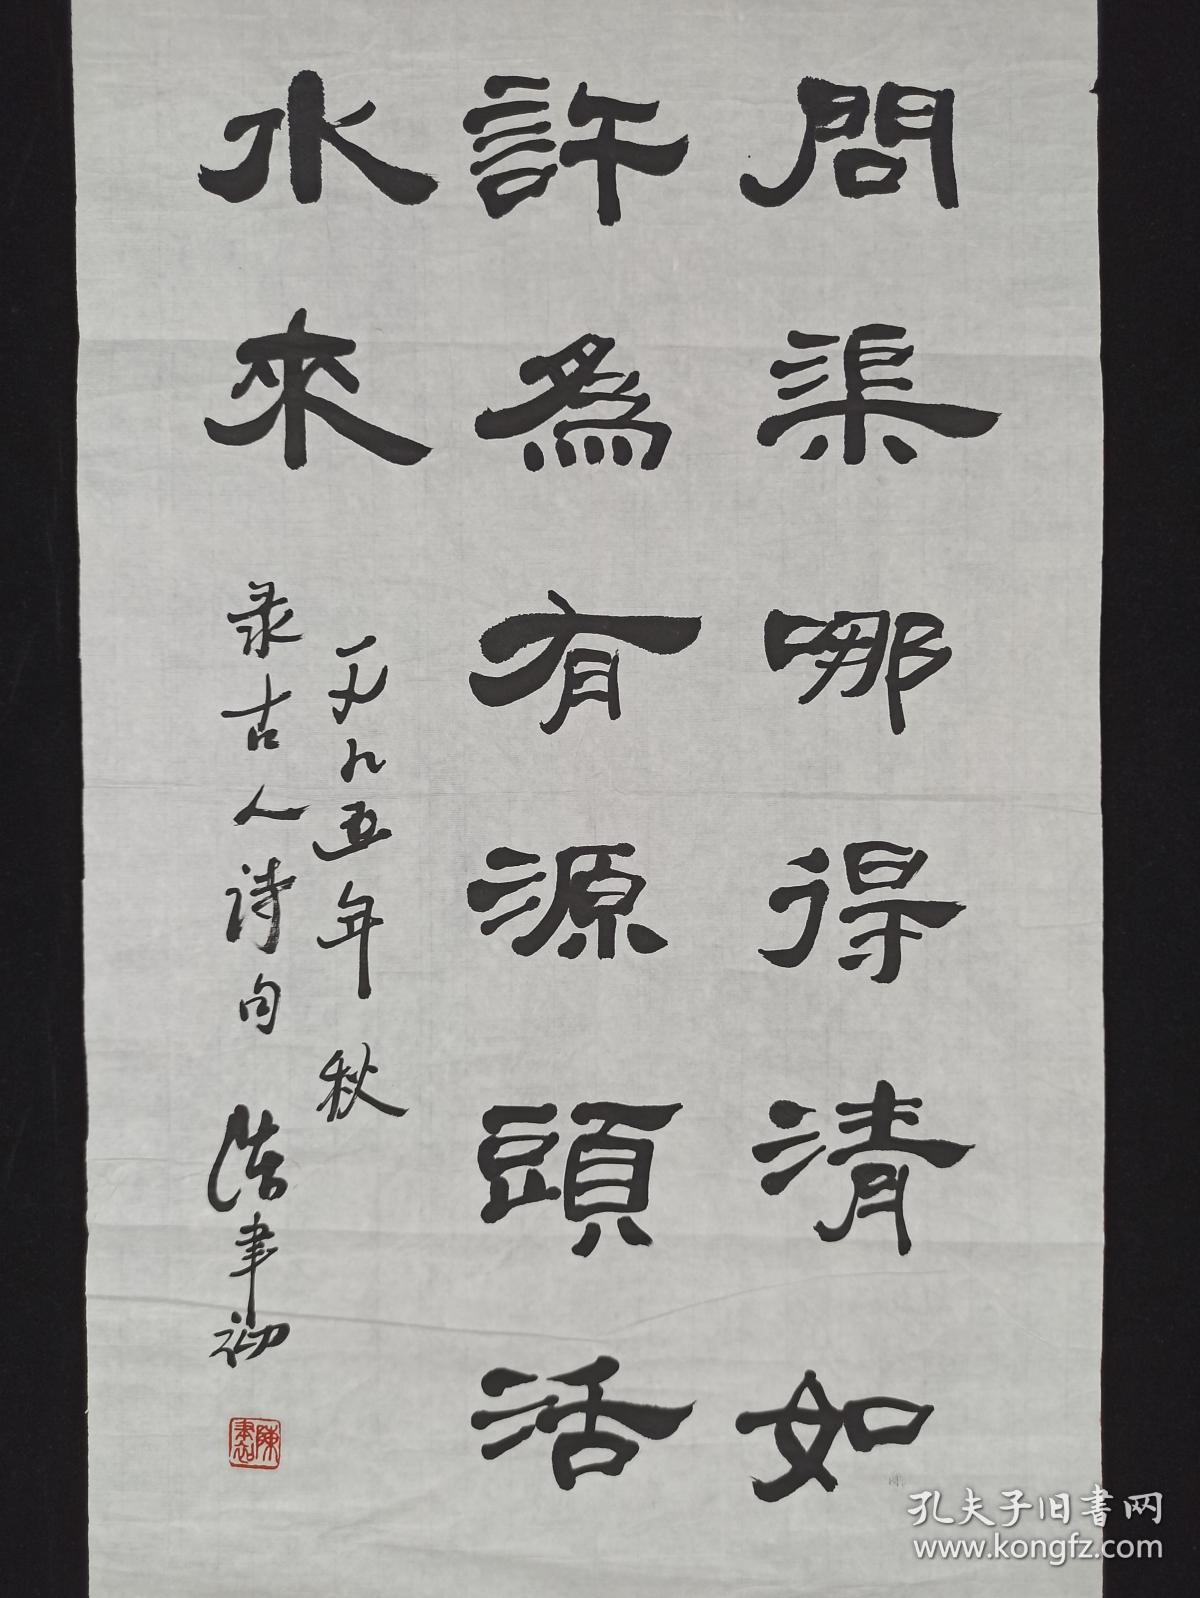 問渠哪得清如
許為有源頭活
水來
一九八五年秋
录古人诗句 聿初
孔夫子旧书网
www.kongfz.com